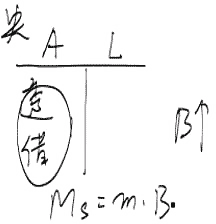 央
A L
意
借
B↑
Ms = m · B.